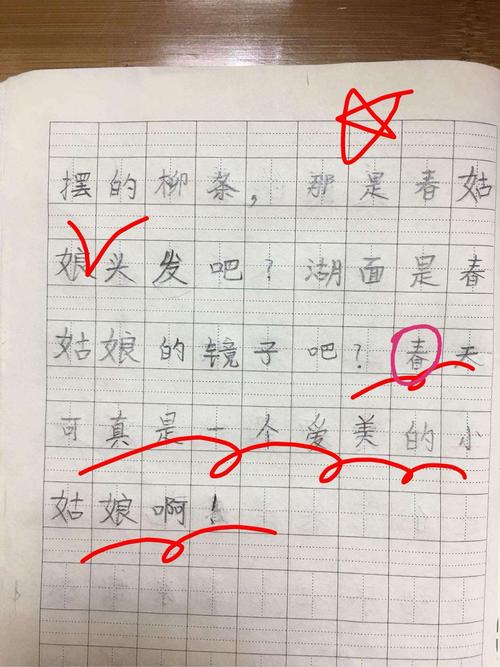 摆的柳条，那是春姑
娘头发吧？湖面是春
姑娘的镜子吧？春天
可真是一个爱美的小
姑娘啊！